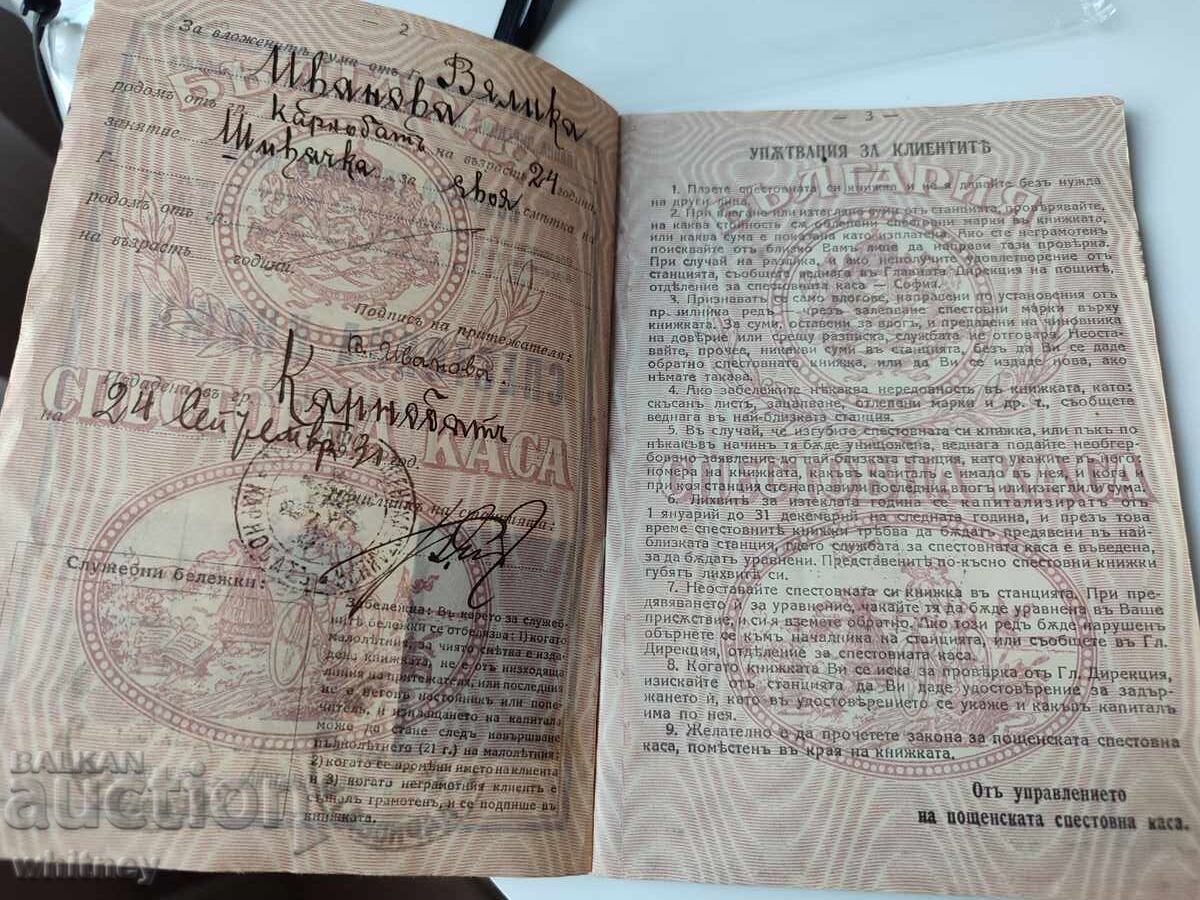 — 2 —
За вложенитѣ суми отъ г. Велика
Иванова
родомъ отъ гр. Карнобатъ на възрастъ 24 години,
занятие Шивачка за своя смѣтка на
Г.
родомъ отъ гр.
на възрастъ години.
Подписъ на притежателя:
В. Иванова.
Издадена въ гр. Карнобатъ
на 24 Септемврий 1931 год.
Началникъ на станцията:
БЪЛГАРИЯ
СПЕСТОВНА КАСА
Служебни бележки:
Забележка: Въ карето за служеб-
нитѣ бележки се отбелязва: 1) когато
малолѣтния за чиято смѣтка е изда-
дена книжката, не е отъ низходяща
линия на притежателя, или последния
не е неговъ настойникъ или попе-
читель, и изплащането на капитала
може да стане следъ навършване
пълнолѣтието (21 г.) на малолѣтния;
2) когато се промѣни името на клиента
и 3) когато неграмотния клиентъ е
станалъ грамотенъ, и се подпише въ
книжката.
— 3 —
УПѪТВАНИЯ ЗА КЛИЕНТИТѢ
1. Пазете спестовната си книжка и не я давайте безъ нужда
на други лица.
2. При влагане или изтегляне суми отъ станцията, провѣрявайте,
на каква стойность сѫ облепени спестовни марки въ книжката,
или каква сума е показана като изплатена. Ако сте неграмотен
поисквайте отъ близко Вамъ лице да направи тази провѣрка.
При случай на разлика, и ако неполучите удовлетворение отъ
станцията, съобщете веднага въ Главната Дирекция на пощитѣ,
отдѣление за спестовната каса — София.
3. Признаватъ се само влогове, направени по установения отъ
правилника редъ — чрезъ залепване спестовни марки върху
книжката. За суми, оставени за влогъ, и предадени на чиновника
на довѣрие или срещу разписка, службата не отговаря. Неоста-
вяйте, прочее, никакви суми въ станцията, безъ да Ви се даде
обратно спестовната книжка, или да Ви се издаде нова, ако
нѣмате такава.
4. Ако забележите нѣкаква нередовность въ книжката, като:
скъсанъ листъ, зацапване, отлепени марки и др. т., съобщете
веднага въ най-близката станция.
5. Въ случай, че изгубите спестовната си книжка, или пъкъ по
нѣкакъвъ начинъ тя бѫде унищожена, веднага подайте необгер-
бовано заявление до най-близката станция, като укажете въ него:
номера на книжката, какъвъ капиталъ е имало въ нея, и кога и
при коя станция сте направили последния влогъ или изтегли сума.
6. Лихвитѣ за изтеклата година се капитализиратъ отъ
1 януарий до 31 декемврий на следната година, и презъ това
време спестовнитѣ книжки трѣбва да бѫдатъ предявени въ най-
близката станция, гдето службата за спестовната каса е въведена,
за да бѫдатъ уравнени. Представенитѣ по-късно спестовни книжки
губятъ лихвитѣ си.
7. Неоставяйте спестовната си книжка въ станцията. При пре-
дявяването ѝ за уравнение, чакайте тя да бѫде уравнена въ Ваше
присѫствие, и си я вземете обратно. Ако този редъ бѫде нарушенъ
обърнете се къмъ началника на станцията, или съобщете въ Гл.
Дирекция, отдѣление за спестовната каса.
8. Когато книжката Ви се иска за провѣрка отъ Гл. Дирекция,
изисквайте отъ станцията да Ви даде удостовѣрение за задър-
жането ѝ, като въ удостовѣрението се укаже и какъвъ капиталъ
има по нея.
9. Желателно е да прочетете закона за пощенската спестовна
каса, помѣстенъ въ края на книжката.
Отъ управлението
на пощенската спестовна каса.
BALKAN
auction
whitney